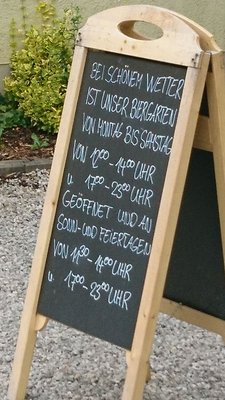 BEI SCHÖNEM WETTER
IST UNSER BIERGARTEN
VON MONTAG BIS SAMSTAG
VON 12⁰⁰-14⁰⁰ UHR
U. 17⁰⁰-23⁰⁰ UHR
GEÖFFNET UND AN
SONN- UND FEIERTAGEN
VON 11³⁰-14⁰⁰ UHR
U. 17⁰⁰-23⁰⁰ UHR